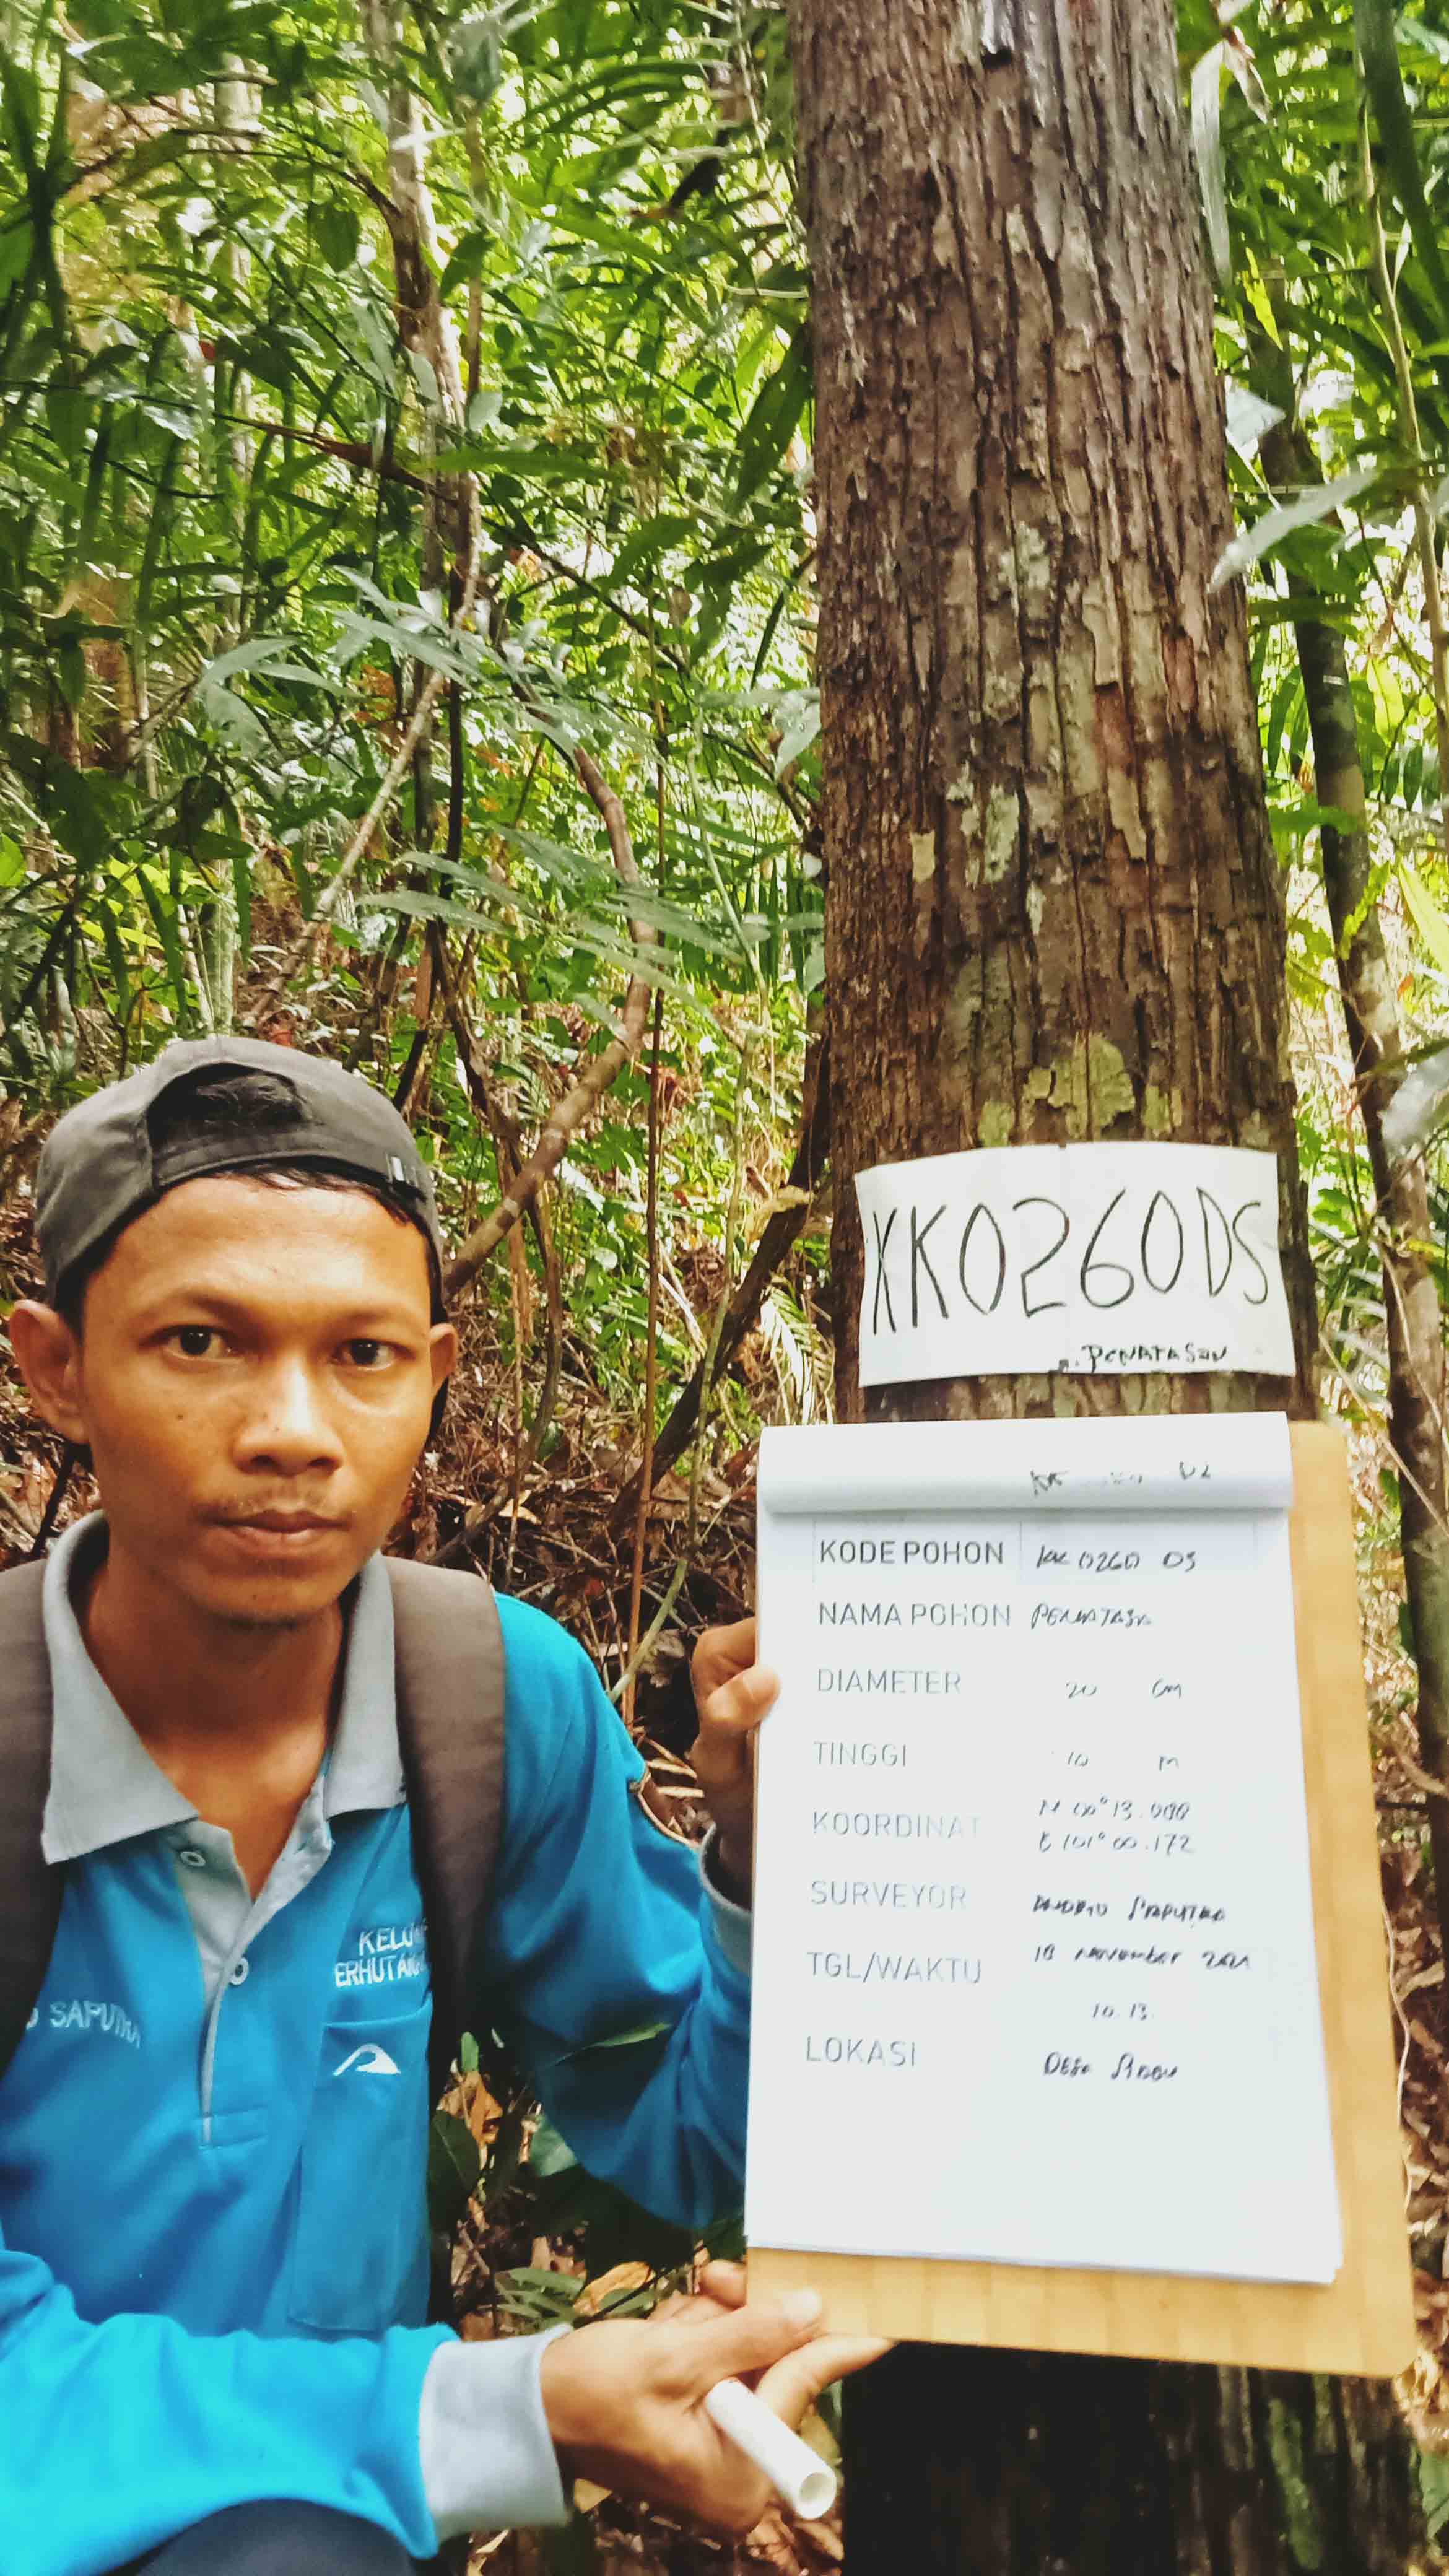 KK0260DS
PENATASAN
KODE POHON KK 0260 DS
NAMA POHON PENATASN
DIAMETER 20 CM
TINGGI 10 M
KOORDINAT N 00° 13.000
E 101° 00.172
SURVEYOR SAPUTRA
TGL/WAKTU 18 November 2021
10.13.
LOKASI DESA
KELO
ERHUTANA
SAPUTRA